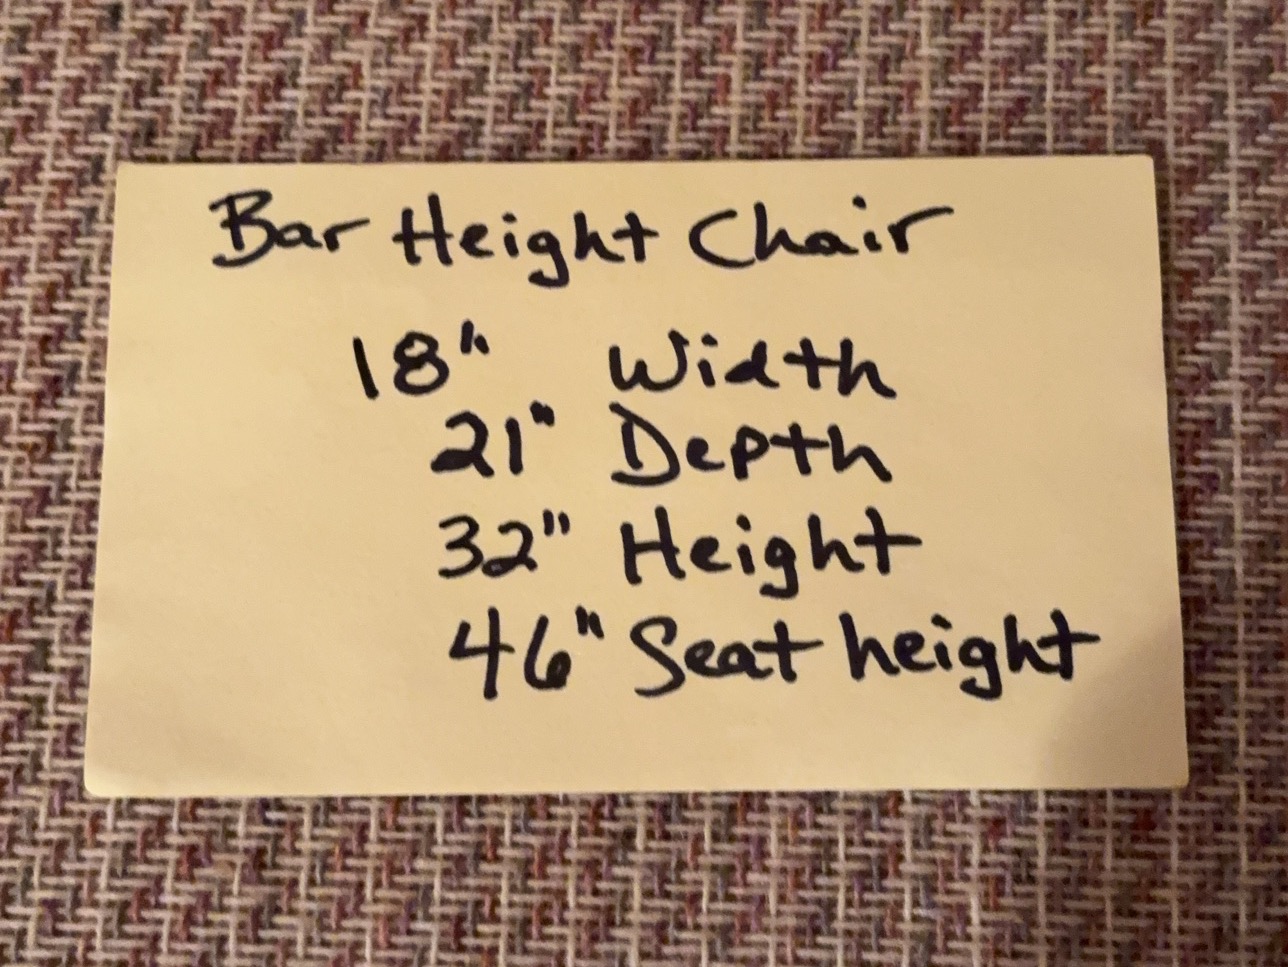 Bar Height Chair
18" Width
21" Depth
32" Height
46" Seat height